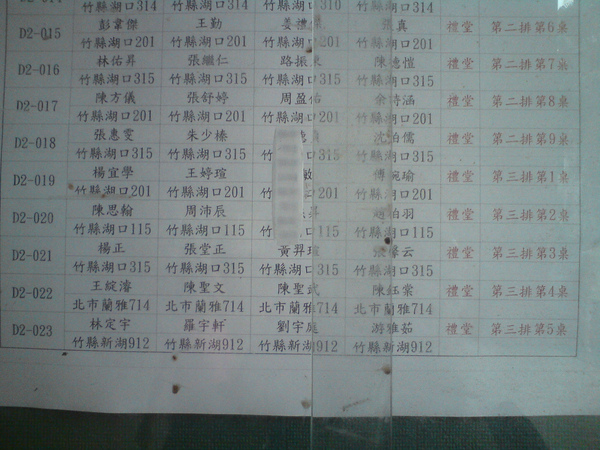 竹縣湖口314 竹縣湖口314 竹縣湖口310 竹縣湖口314
D2-015 彭韋傑 王勤 姜禮 張真 禮堂 第二排第6桌
竹縣湖口201 竹縣湖口201 竹縣湖口201 竹縣湖口201
D2-016 林佑昇 張繼仁 路振 陳德愷 禮堂 第二排第7桌
竹縣湖口315 竹縣湖口315 竹縣湖口315 竹縣湖口315
D2-017 陳方儀 張舒婷 周盈佑 余詩涵 禮堂 第二排第8桌
竹縣湖口201 竹縣湖口201 竹縣湖口201 竹縣湖口201
D2-018 張惠雯 朱少榛 沈柏儒 禮堂 第二排第9桌
竹縣湖口315 竹縣湖口315 竹 口315 竹縣湖口315
D2-019 楊宜學 王婷瑄 敏 傅婉瑜 禮堂 第三排第1桌
竹縣湖口201 竹縣湖口201 竹 口201 竹縣湖口201
D2-020 陳思翰 周沛辰 趙柏羽 禮堂 第三排第2桌
竹縣湖口115 竹縣湖口115 竹 口115 竹縣湖口115
D2-021 楊正 張堂正 黃羿瑄 張馨云 禮堂 第三排第3桌
竹縣湖口315 竹縣湖口315 竹縣湖口315 竹縣湖口315
D2-022 王綻濬 陳聖文 陳聖武 陳鈺棠 禮堂 第三排第4桌
北市蘭雅714 北市蘭雅714 北市蘭雅714 北市蘭雅714
D2-023 林定宇 羅宇軒 劉宇庭 游雅茹 禮堂 第三排第5桌
竹縣新湖912 竹縣新湖912 竹縣新湖912 竹縣新湖912